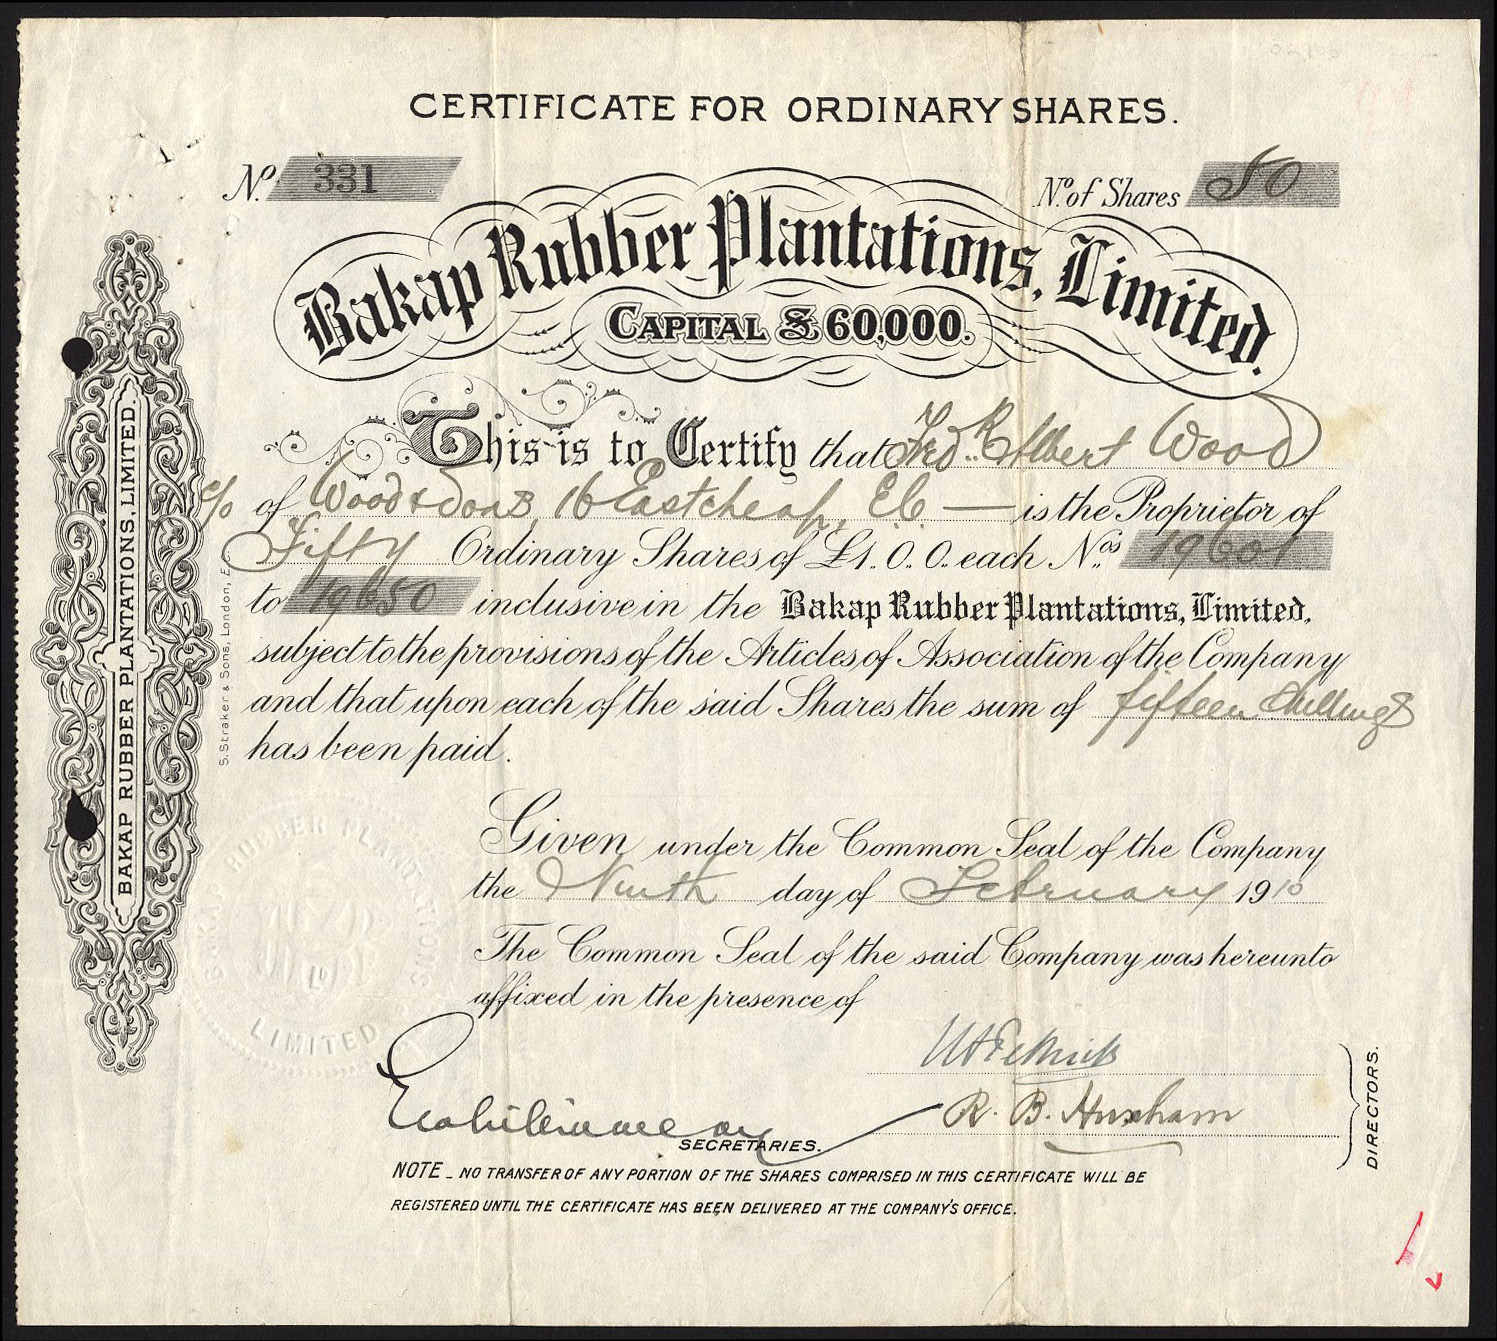 CERTIFICATE FOR ORDINARY SHARES.
No. 331
No. of Shares 50
Bakap Rubber Plantations, Limited.
CAPITAL £60,000.
This is to Certify that Fred K Albert Wood
c/o of Wood & Sons, 16 Eastcheap, E.C — is the Proprietor of
Fifty Ordinary Shares of £1. 0. 0. each Nos. 19601
to 19650 inclusive in the Bakap Rubber Plantations, Limited,
subject to the provisions of the Articles of Association of the Company
and that upon each of the said Shares the sum of fifteen shillings
has been paid.
Given under the Common Seal of the Company
the Ninth day of February 1910
The Common Seal of the said Company was hereunto
affixed in the presence of
R. B. Huxham
DIRECTORS.
SECRETARIES.
NOTE _ NO TRANSFER OF ANY PORTION OF THE SHARES COMPRISED IN THIS CERTIFICATE WILL BE
REGISTERED UNTIL THE CERTIFICATE HAS BEEN DELIVERED AT THE COMPANY'S OFFICE.
BAKAP RUBBER PLANTATIONS, LIMITED.
S. Straker & Sons, London, E.
BAKAP RUBBER PLANTATIONS
LIMITED